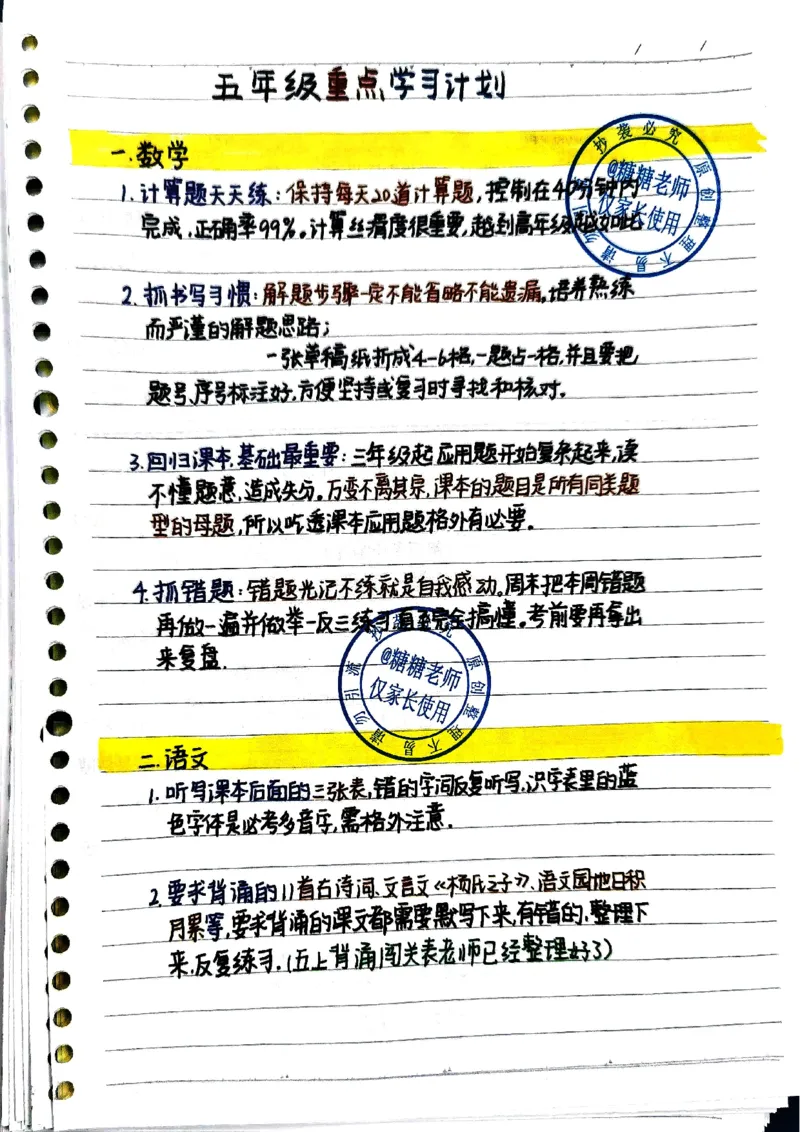 五年级重点学习计划
一.数学
1.计算题天天练:保持每天20道计算题,控制在40分钟内
完成.正确率99%。计算丝滑度很重要,越到高年级越如此
2.抓书写习惯:解题步骤一定不能省略不能遗漏,培养熟练
而严谨的解题思路;
一张草稿纸折成4-6格,一题占一格,并且要把
题号、序号标注好,方便坚持或复习时寻找和核对。
3.回归课本,基础最重要:三年级起应用题开始复杂起来,读
不懂题意,造成失分。万变不离其宗,课本的题目是所有同类题
型的母题,所以吃透课本应用题格外有必要。
4.抓错题:错题光记不练就是自我感动。周末把本周错题
再做一遍并做举一反三练习直至完全搞懂。考前要再拿出
来复盘.
二.语文
1.听写课本后面的三张表,错的字词反复听写.识字表里的蓝
色字体是必考多音字,需格外注意.
2.要求背诵的11首古诗词、文言文《杨氏之子》、语文园地日积
月累等,要求背诵的课文都需要默写下来,有错的,整理下
来.反复练习.(五上背诵闯关表老师已经整理好了)
抄袭必究 原创整理不易请勿
@糖糖老师
仅家长使用
抄袭必究 原创整理不易请勿引流
@糖糖老师
仅家长使用